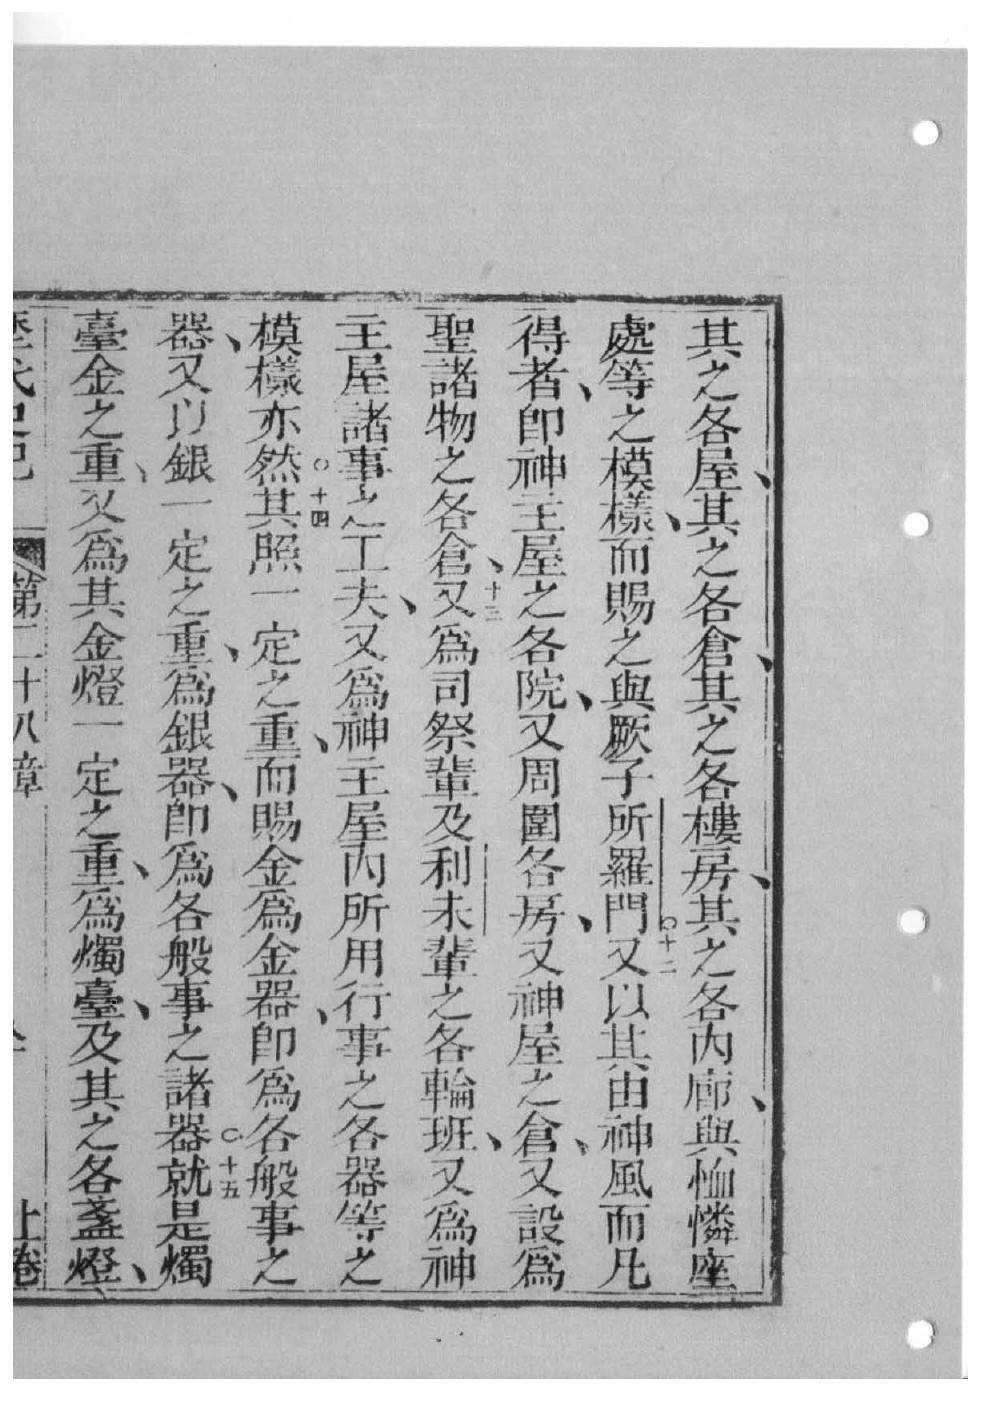 其之各屋、其之各倉、其之各樓房、其之各內廊、與恤憐座
處等之模樣、而賜之與厥子所羅門○十二又以其由神風而凡
得者、即神主屋之各院、又周圍各房、又神屋之倉、又設爲
聖諸物之各倉、十三又爲司祭輩及利未輩之各輪班、又爲神
主屋諸事之工夫、又爲神主屋內所用行事之各器等之
模樣亦然○十四其照一定之重、而賜金爲金器、即爲各般事之
器、又以銀一定之重、爲銀器、即爲各般事之諸器○十五就是燭
臺金之重、又爲其金燈一定之重、爲燭臺、及其之各盞燈、
第二十八章
上卷